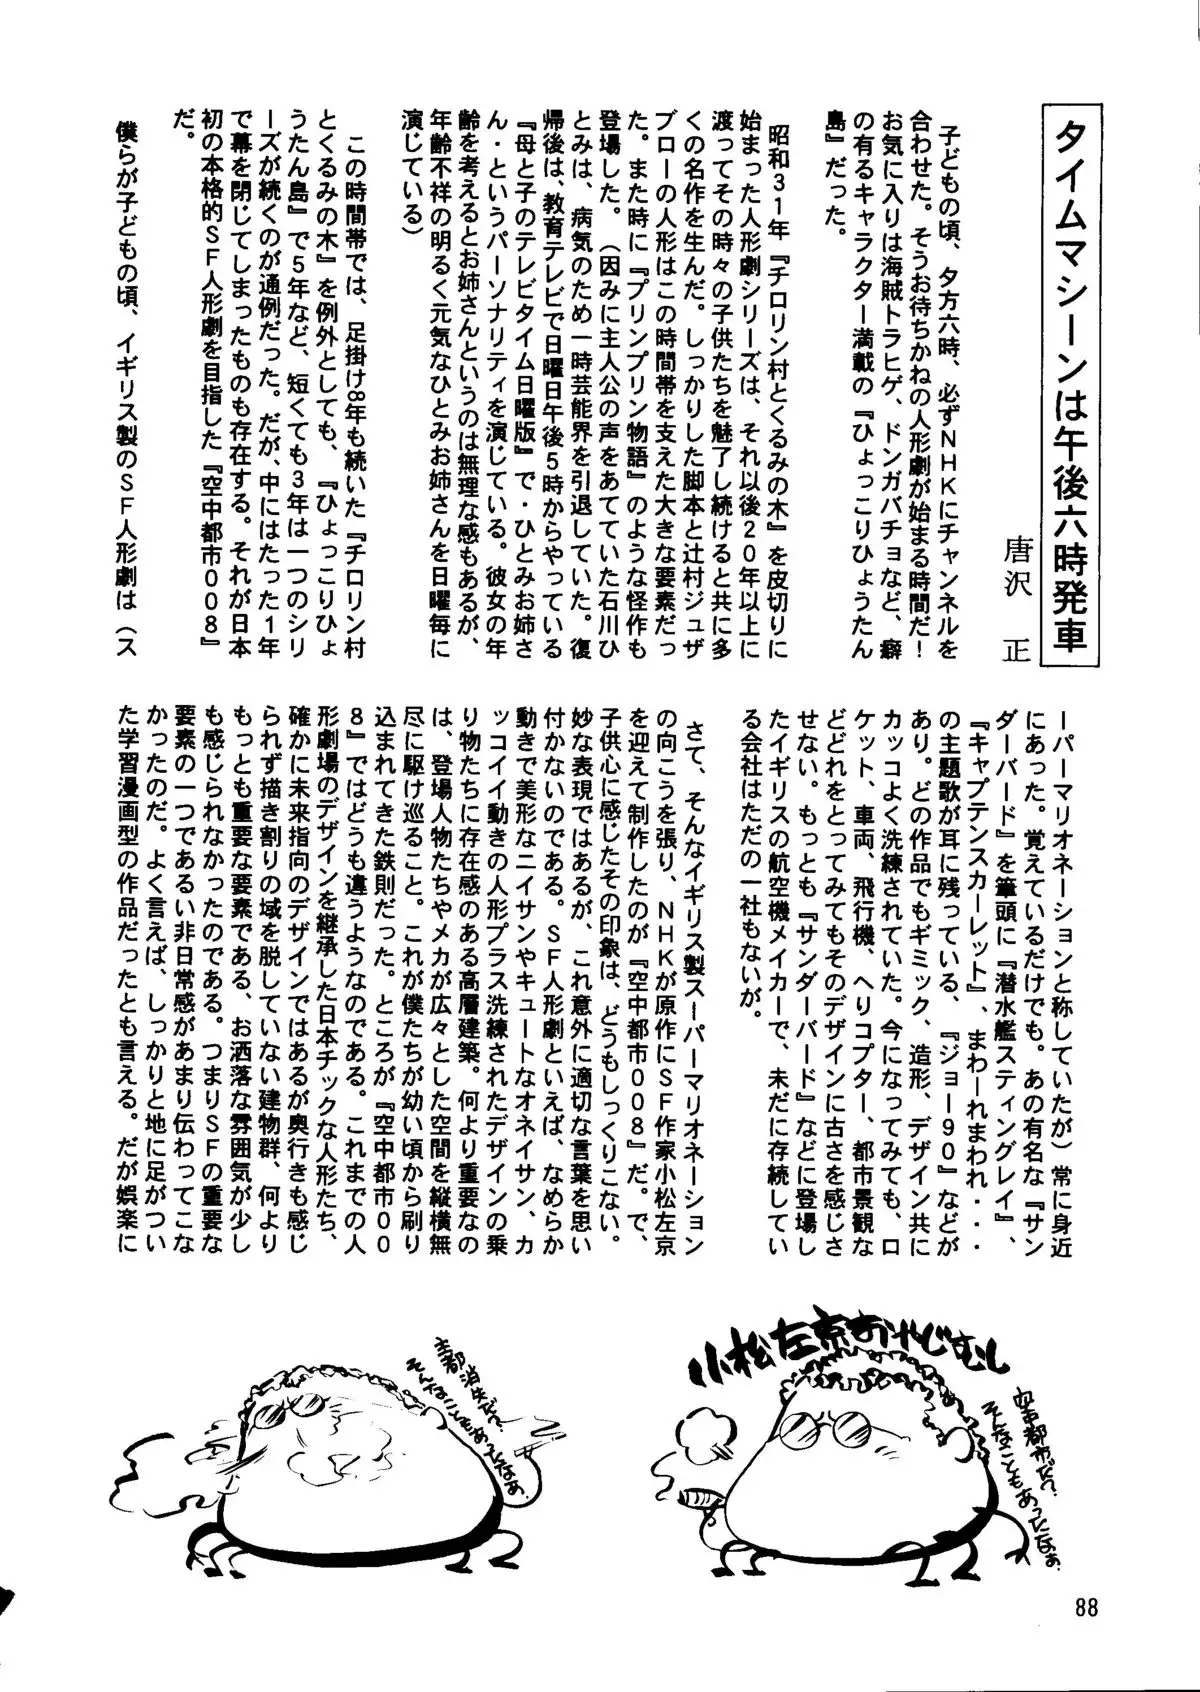 タイムマシーンは午後六時発車
唐沢　正
子どもの頃、夕方六時、必ずNHKにチャンネルを
合わせた。そうお待ちかねの人形劇が始まる時間だ！
お気に入りは海賊トラヒゲ、ドンガバチョなど、癖
の有るキャラクター満載の『ひょっこりひょうたん
島』だった。
昭和31年『チロリン村とくるみの木』を皮切りに
始まった人形劇シリーズは、それ以後20年以上に
渡ってその時々の子供たちを魅了し続けると共に多
くの名作を生んだ。しっかりした脚本と辻村ジュザ
ブローの人形はこの時間帯を支えた大きな要素だっ
た。また時に『プリンプリン物語』のような怪作も
登場した。（因みに主人公の声をあてていた石川ひ
とみは、病気のため一時芸能界を引退していた。復
帰後は、教育テレビで日曜日午後5時からやっている
『母と子のテレビタイム日曜版』で・ひとみお姉さ
ん・というパーソナリティを演じている。彼女の年
齢を考えるとお姉さんというのは無理な感もあるが、
年齢不祥の明るく元気なひとみお姉さんを日曜毎に
演じている）
この時間帯では、足掛け8年も続いた『チロリン村
とくるみの木』を例外としても、『ひょっこりひょ
うたん島』で5年など、短くても3年は一つのシリ
ーズが続くのが通例だった。だが、中にはたった1年
で幕を閉じてしまったものも存在する。それが日本
初の本格的SF人形劇を目指した『空中都市008』
だ。
僕らが子どもの頃、イギリス製のSF人形劇は（ス
ーパーマリオネーションと称していたが）常に身近
にあった。覚えているだけでも。あの有名な『サン
ダーバード』を筆頭に『潜水艦スティングレイ』、
『キャプテンスカーレット』、まわーれまわれ・・・
の主題歌が耳に残っている、『ジョー90』などが
あり。どの作品でもギミック、造形、デザイン共に
カッコよく洗練されていた。今になってみても、ロ
ケット、車両、飛行機、へりコプター、都市景観な
どどれをとってみてもそのデザインに古さを感じさ
せない。もっとも『サンダーバード』などに登場し
たイギリスの航空機メイカーで、未だに存続してい
る会社はただの一社もないが。
さて、そんなイギリス製スーパーマリオネーション
の向こうを張り、NHKが原作にSF作家小松左京
を迎えて制作したのが『空中都市008』だ。で、
子供心に感じたその印象は、どうもしっくりこない。
妙な表現ではあるが、これ意外に適切な言葉を思い
付かないのである。SF人形劇といえば、なめらか
動きで美形なニイサンやキュートなオネイサン、カ
ッコイイ動きの人形プラス洗練されたデザインの乗
り物たちに存在感のある高層建築。何より重要なの
は、登場人物たちやメカが広々とした空間を縦横無
尽に駆け巡ること。これが僕たちが幼い頃から刷り
込まれてきた鉄則だった。ところが『空中都市00
8』ではどうも違うようなのである。これまでの人
形劇場のデザインを継承した日本チックな人形たち、
確かに未来指向のデザインではあるが奥行きも感じ
られず描き割りの域を脱していない建物群、何より
もっとも重要な要素である、お洒落な雰囲気が少し
も感じられなかったのである。つまりSFの重要な
要素の一つであるい非日常感があまり伝わってこな
かったのだ。よく言えば、しっかりと地に足がつい
た学習漫画型の作品だったとも言える。だが娯楽に
小松左京おやじむし
空中都市だ?
そんなこともあったなぁ
首都消失だ?
そんなこともあったなぁ。
88